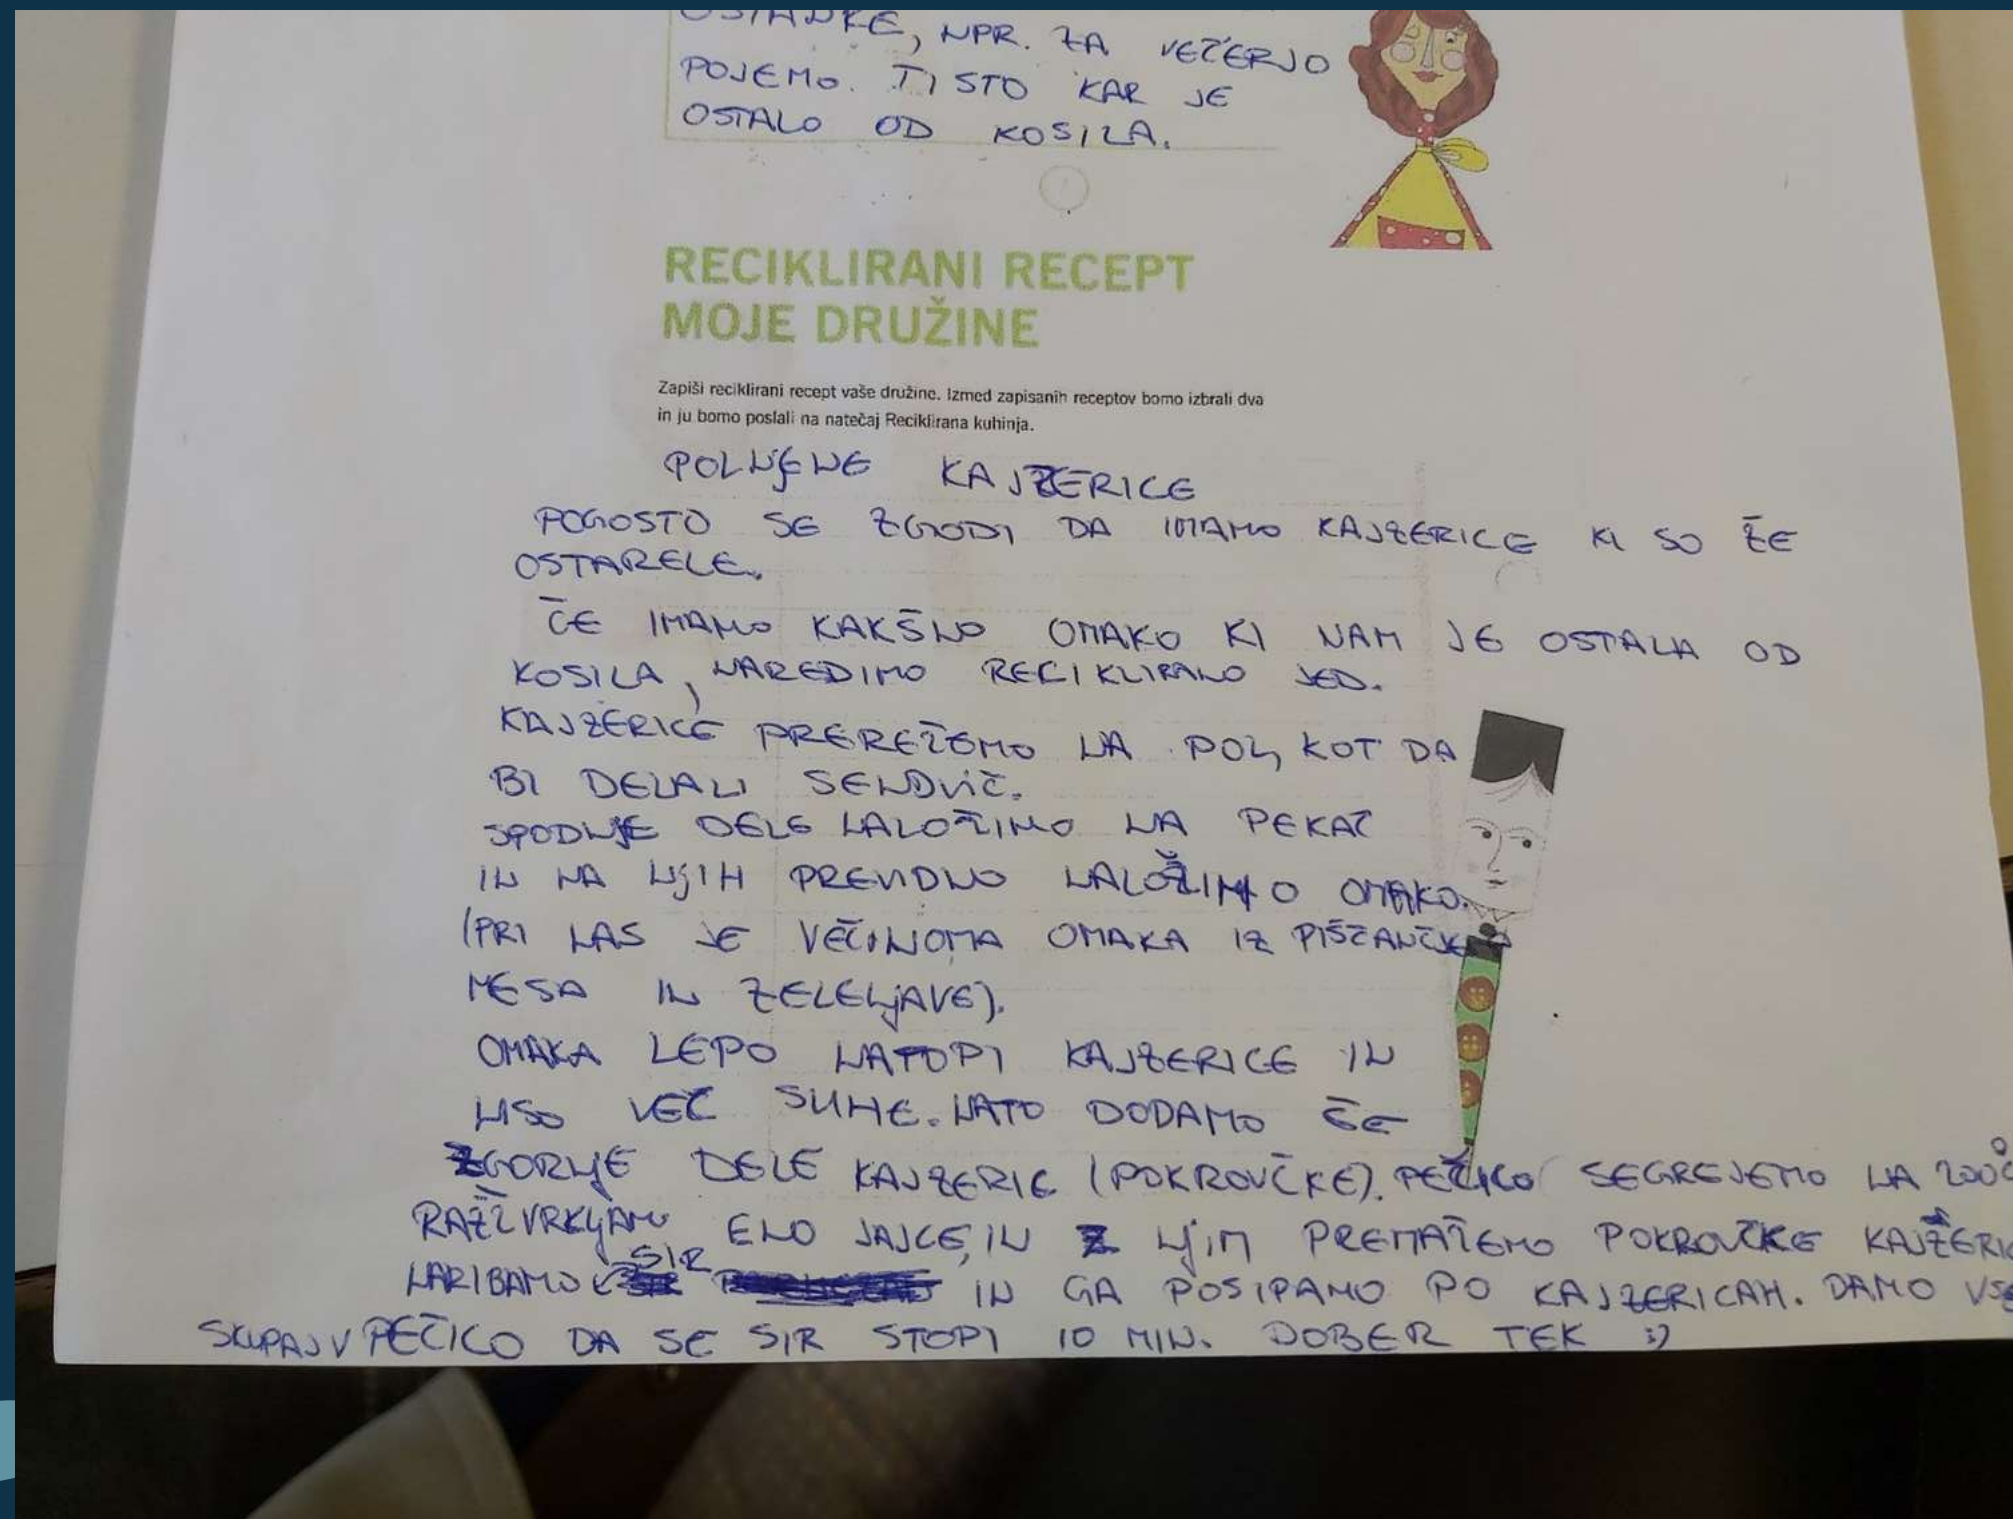 OSTANKE, NPR. ZA VEČERJO
POJEMO. TISTO KAR JE
OSTALO OD KOSILA.
RECIKLIRANI RECEPT
MOJE DRUŽINE
Zapiši reciklirani recept vaše družine. Izmed zapisanih receptov bomo izbrali dva
in ju bomo poslali na natečaj Reciklirana kuhinja.
POLNJENE KAJZERICE
POGOSTO SE ZGODI DA IMAMO KAJZERICE KI SO ŽE
OSTARELE.
ČE IMAMO KAKŠNO OMAKO KI NAM JE OSTALA OD
KOSILA, NAREDIMO RECIKLIRANO JED.
KAJZERICE PREREŽEMO NA POL, KOT DA
BI DELALI SENDVIČ.
SPODNJE DELE NALOŽIMO NA PEKAČ
IN NA NJIH PREVIDNO NALOŽIMO OMAKO.
(PRI NAS JE VEČINOMA OMAKA IZ
MESA IN ZELENJAVE).
OMAKA LEPO NATOPI KAJZERICE IN
NISO VEČ SUHE. NATO DODAMO ŠE
ZGORNJE DELE KAJZERIC (POKROVČKE). PEČICO SEGREJEMO NA 200°C
RAŽŽVRKLJAMO ENO JAJCE, IN Z NJIM PREMAŽEMO POKROVČKE
NARIBAMO SIR IN GA POSIPAMO PO KAJZERICAH. DAMO VSE
SKUPAJ V PEČICO DA SE SIR STOPI 10 MIN. DOBER TEK :)